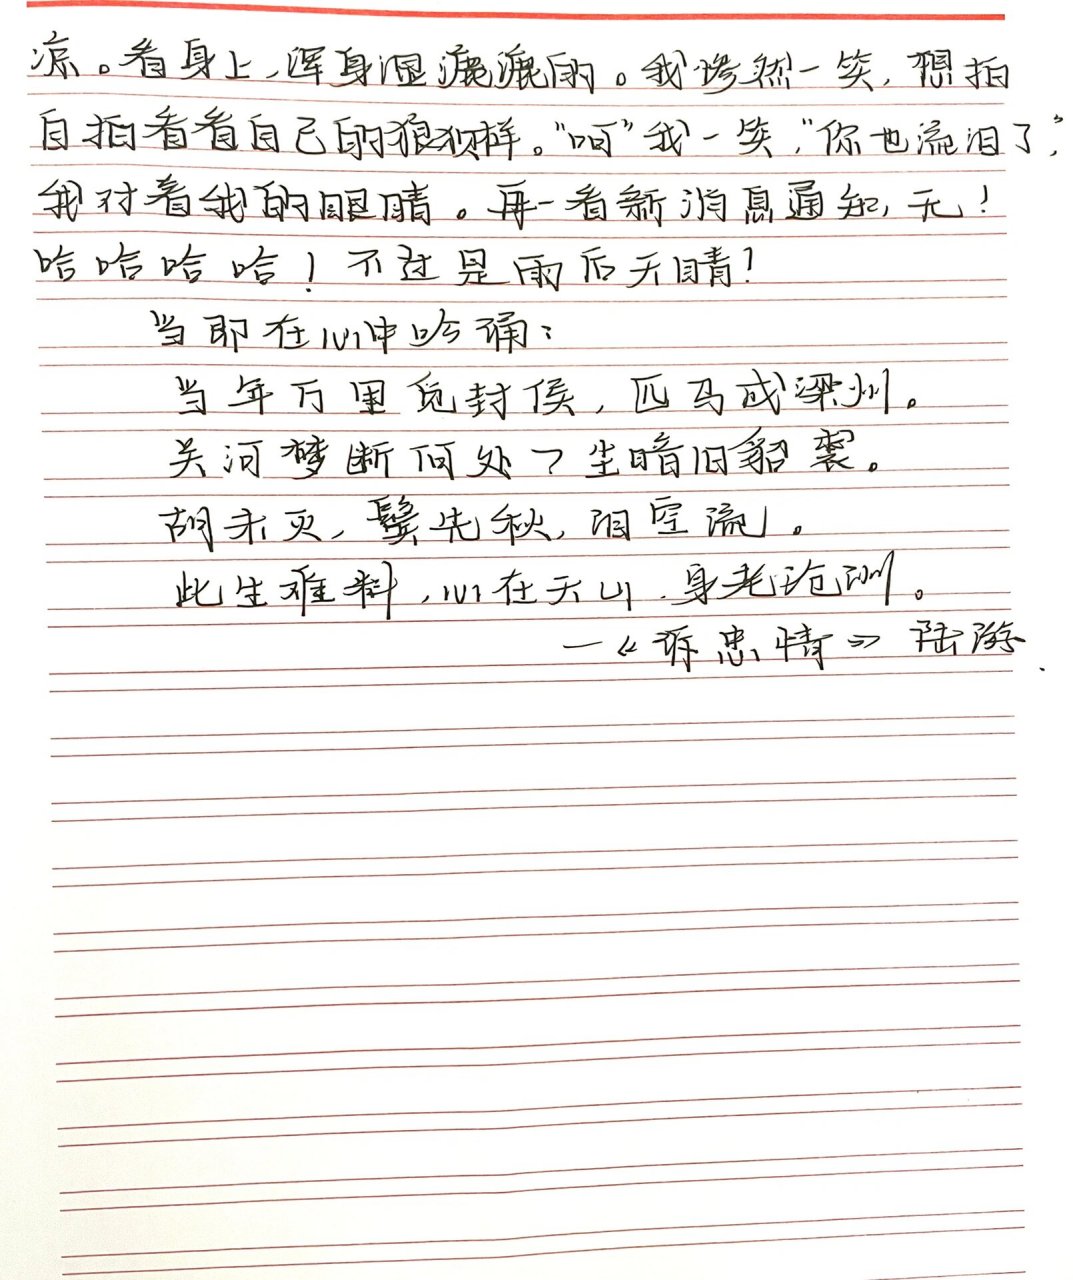 凉。看身上，浑身湿漉漉的。我惨然一笑，想拍
自拍看看自己的狼狈样。“呵”我一笑，“你也流泪了”，
我对着我的眼睛。再一看新消息通知，无！
哈哈哈哈！不过是雨后天晴！
当即在心中吟诵：
当年万里觅封侯，匹马戍梁州。
关河梦断何处？尘暗旧貂裘。
胡未灭，鬓先秋，泪空流。
此生难料，心在天山，身老沧洲。
—《诉忠情》陆游.